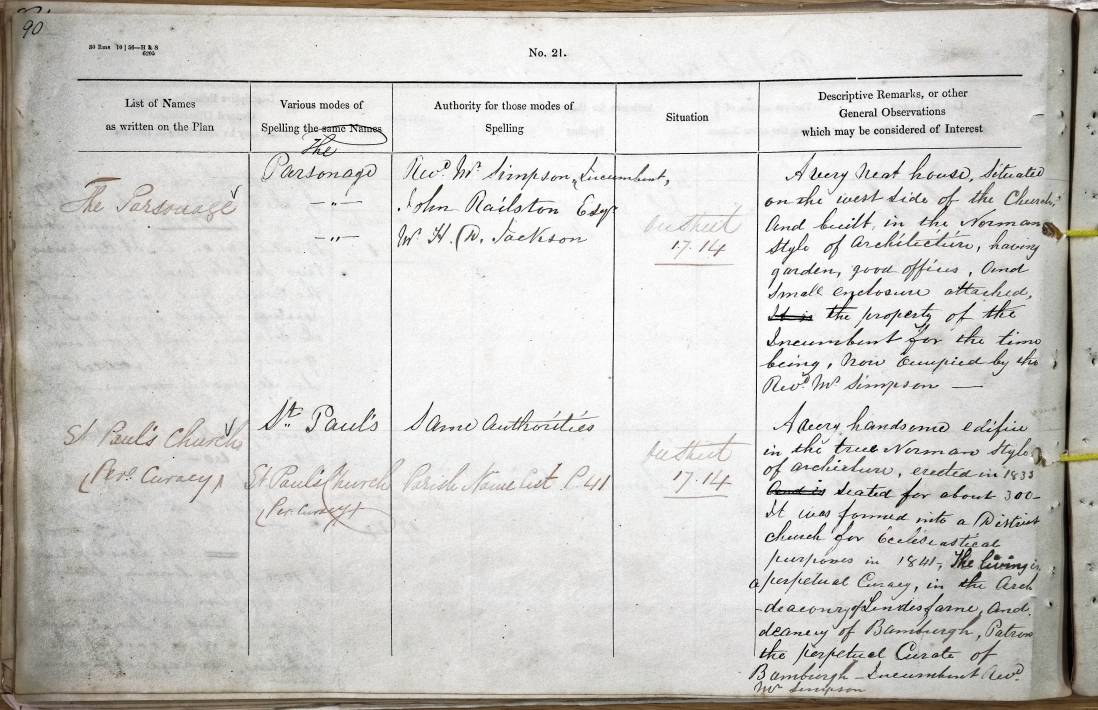 90
30 Rms 10 | 56—H & S
6205
No. 21.
List of Names
as written on the Plan
Various modes of
Spelling the same Names
Authority for those modes of
Spelling
Situation
Descriptive Remarks, or other
General Observations
which may be considered of Interest
The Parsonage
The
Parsonage
— " —
— " —
Revd. Mr. Simpson, Incumbent,
John Railston Esqr
W. H. D. Jackson
on Sheet
17.14
A very neat house, Situated
on the west side of the Church,
And built in the Norman
Style of Architecture, having
garden, good offices, And
Small enclosure attached,
It is the property of the
Incumbent for the time
being, Now Occupied by the
Revd. Mr Simpson —
St Paul's Church
(Per. Curacy)
St. Paul's
St Paul's Church
Per Curacy
Same Authorities
Parish Name List P. 41
on Sheet
17.14
A very handsome edifice
in the true Norman Style
of archicture, erected in 1833
And is Seated for about 300—
It was formed into a District
church for Ecclesiastical
purposes in 1841, The living is
a perpetual Curacy, in the Arch
-deaconry of Lindisfarne, And
deanery of Bamburgh, Patron
the perpetual Curate of
Bamburgh — Incumbent Revd.
Mr Simpson